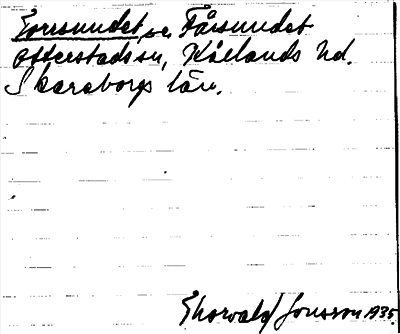 Forssundet, se, Fårsundet
Otterstads sn, Kållands hd.
Skaraborgs län.
Thorvald Jonsson 1935.